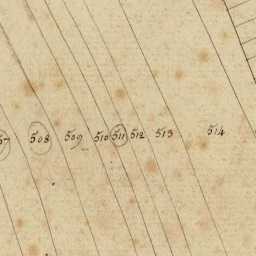 508 509 510 511 512 513 514